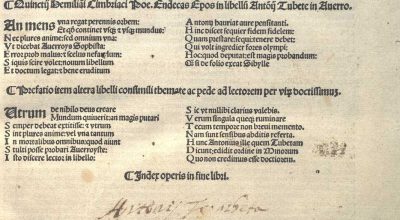 ¶ Quinctij Hemiliani Cimbriaci Poe. Endecas Epos in libellũ Antonij Tubete in Auerro.
An mens vna regat perennis orbem:
Et q̃ continet vsq; et vsq; mundus:
N ec plures anime: sed omnium vna:
V t dicebat Auerroys Sophista:
E rror prob malus: et scelus nefandum:
S iquis scire volet: nouum libellum
E t doctum legat: et bene eruditum
A ntonij hauriat aure pensitanti.
H inc discet sequier fidem fidendi.
Quam prestare: sequi: tenere debet:
Qui volt ingredier fores olympi:
H ocquod deputat: est magis probandum:
Q si de folio exeat Sibylle
¶ Prefatio item altera libelli consimili themate ac pede ad lectorem per vsq; doctissimus.
Utrum de nihilo deus creare
Mundum quiuerit: an magis putari
S emper debeat extitisse: et vtrum
S int plures anime: vel vna tantum
I n mortalibus omnibusquod aiunt
S tulti pseshe probari Auerroyste:
I sto discere lector: in libello:
S ic vt nullibi clarius valebis.
V erum singula queq; ruminare
T ecum tempore non breui memento.
N am sunt sensibus abditis referta.
H unc Antonius ille quem Tubetam
D icunt: edidit ordine in Minorum
Quo non credimus esse doctiorem.
¶ Index operis in fine libri.